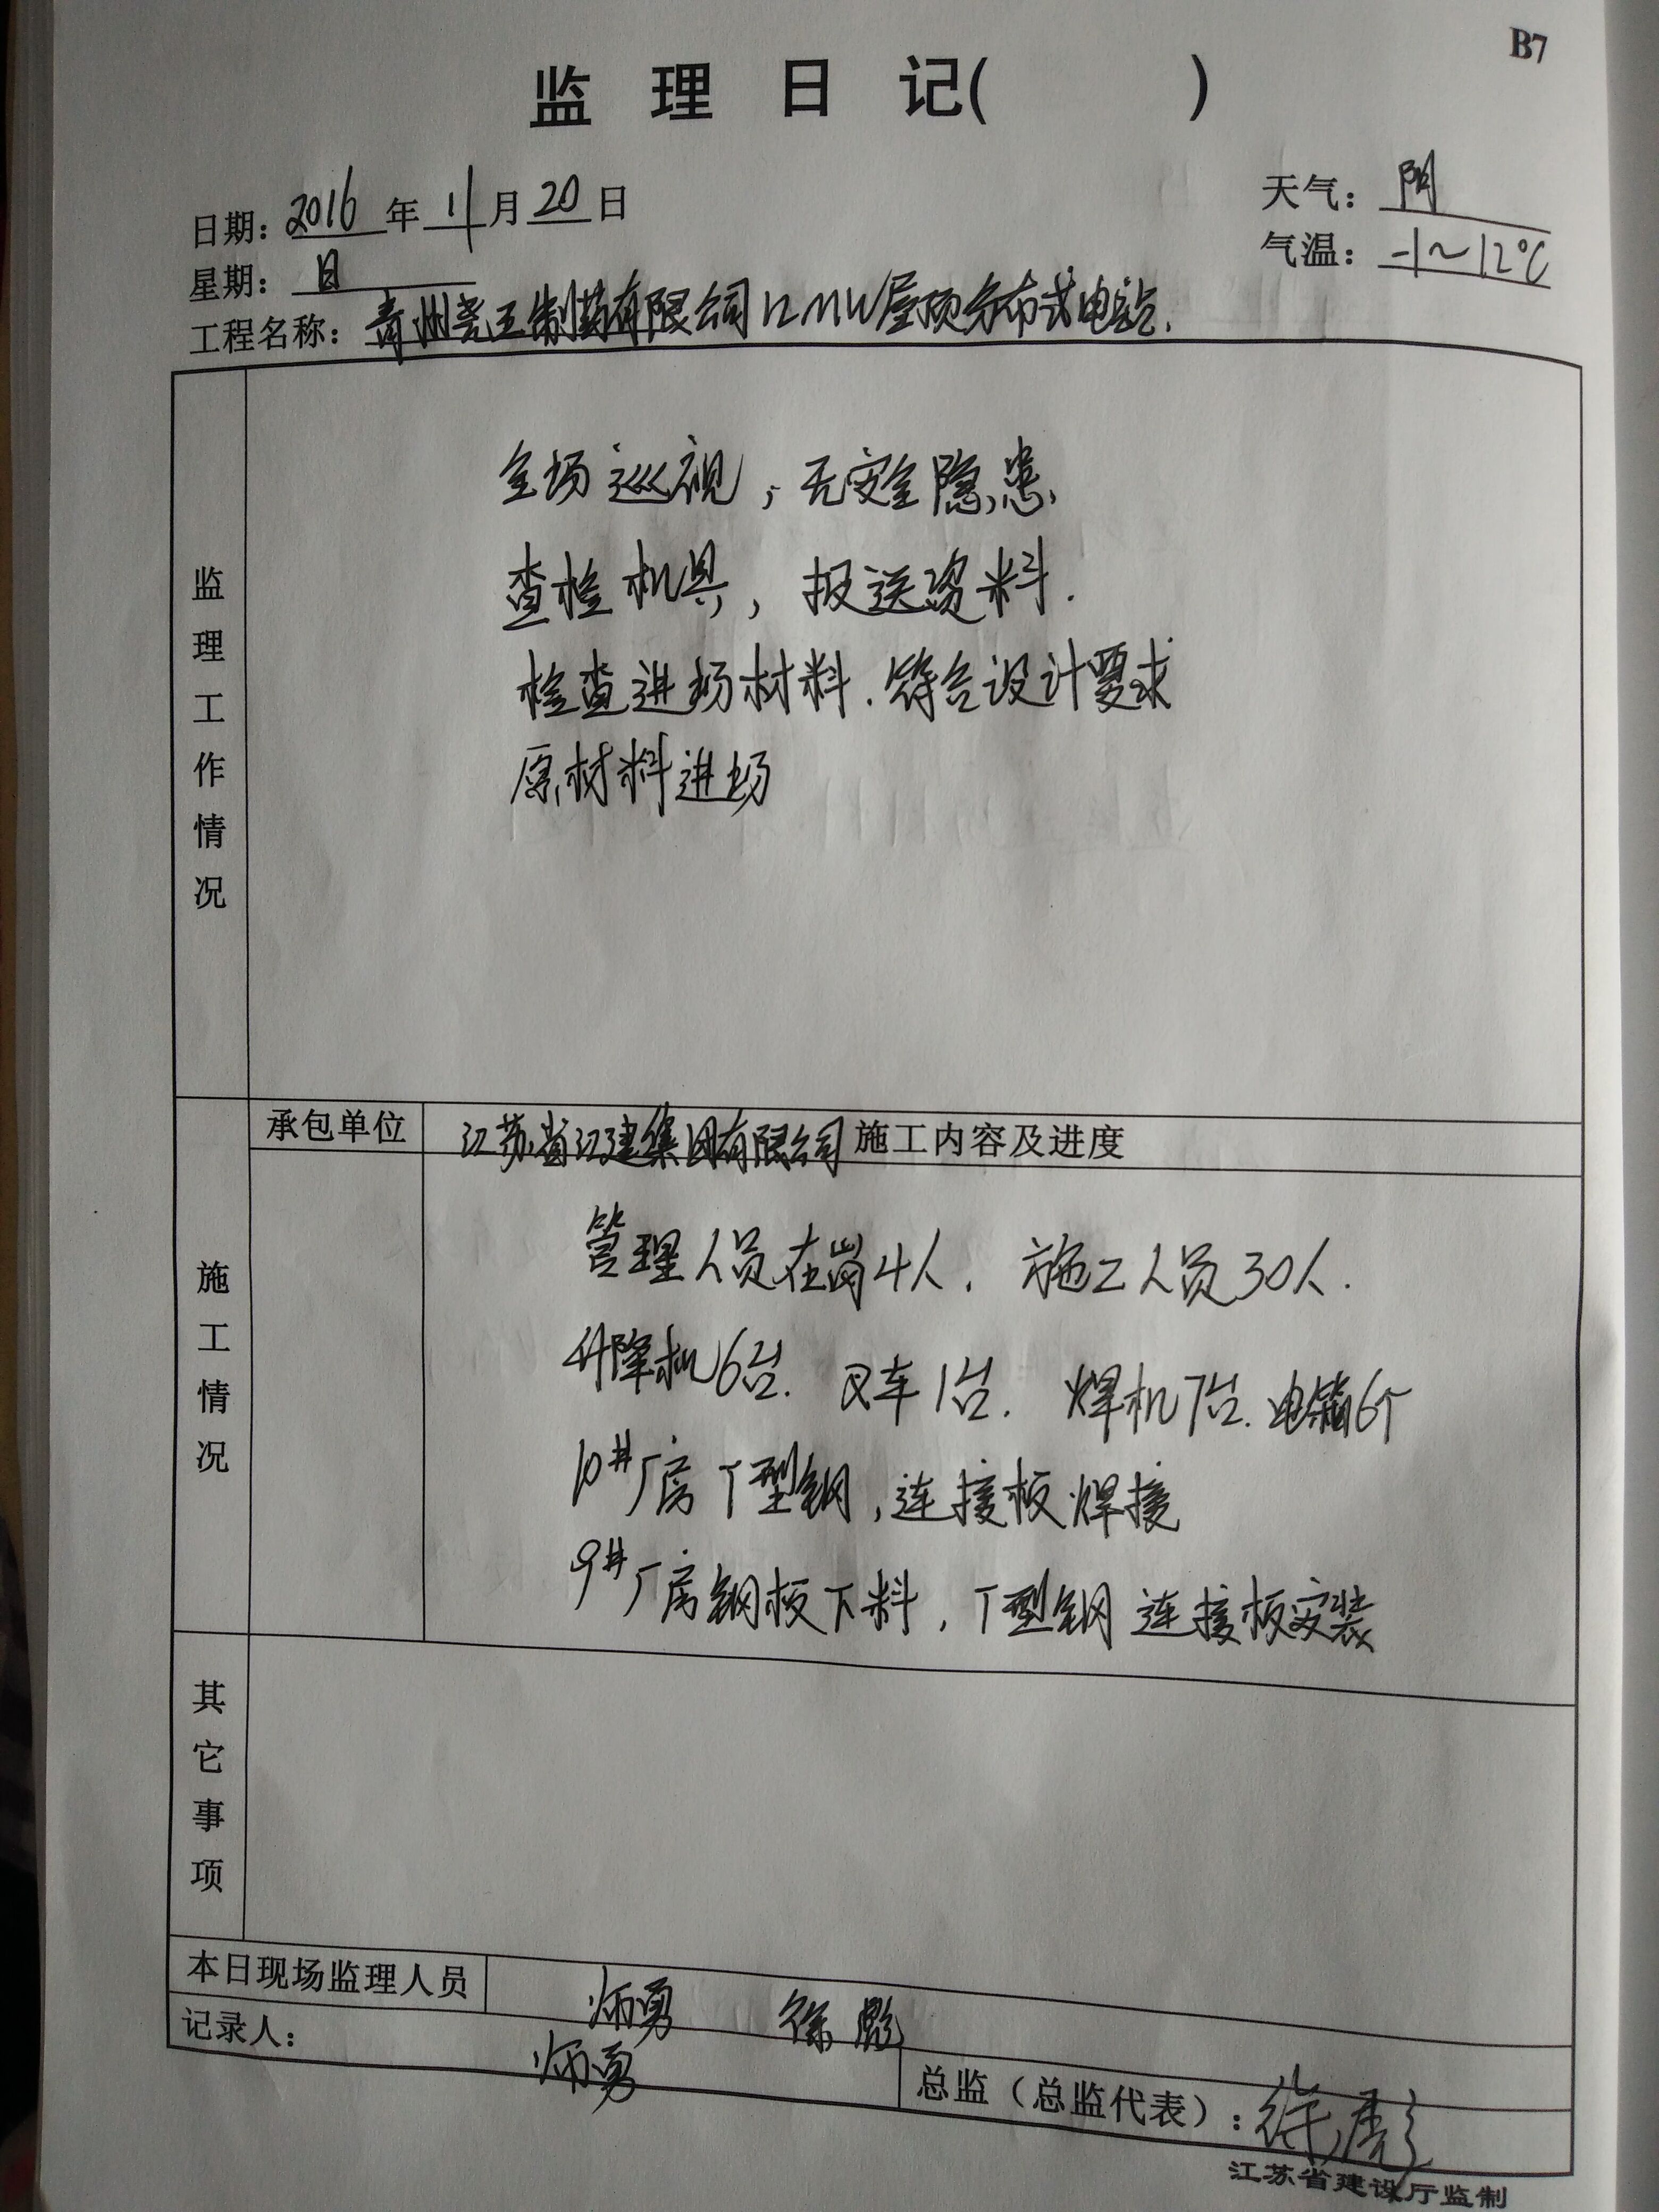 B7
监 理 日 记( )
日期: 2016 年 11 月 20 日
天气: 阴
星期: 日
气温: -1~12℃
工程名称: 青州尧王制药有限公司12MW屋顶分布式电站.
监理工作情况
全场巡视,无安全隐患
查检机具,报送资料.
检查进场材料.符合设计要求
原材料进场
施工情况
承包单位 江苏省江建集团有限公司 施工内容及进度
管理人员在岗4人. 施工人员30人.
升降机6台. 叉车1台. 焊机7台. 电箱6个
10#厂房T型钢,连接板焊接
9#厂房钢板下料,T型钢连接板安装
其它事项
本日现场监理人员 勇 徐彪
记录人: 勇
总监(总监代表): 徐彪
江苏省建设厅监制